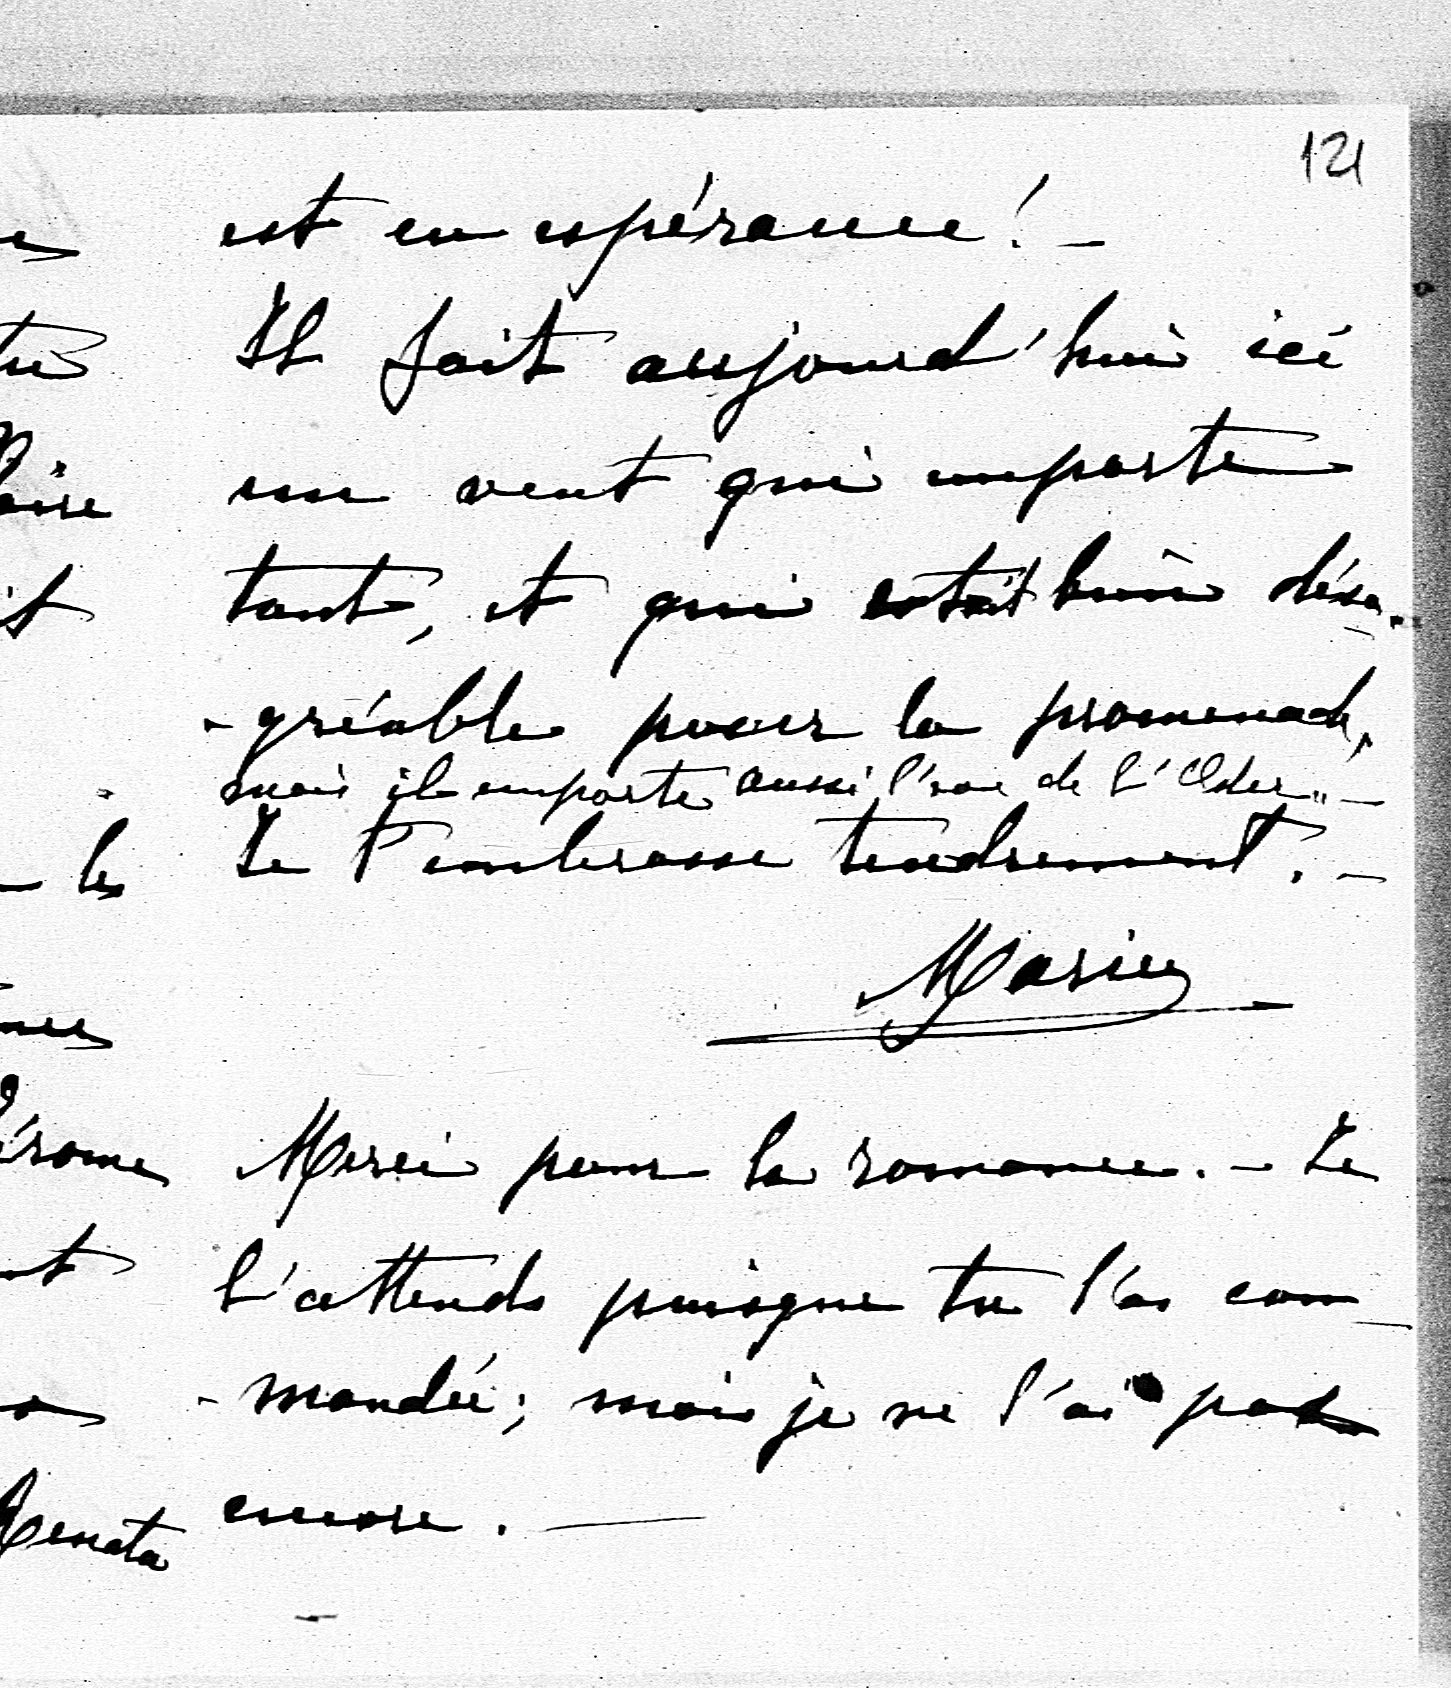 121
est en espérance! –
Il fait aujourd'hui ici
un vent qui emporte
tout, et qui est bien désa-
-gréable pour la promenade,
mais il emporte aussi l'eau de l'Oder. –
Je t'embrasse tendrement. –
Marie
Merci pour la romance. – Je
l'attends puisque tu l'as com-
-mandée; mais je ne l'ai pas
encore. –
les
Renata